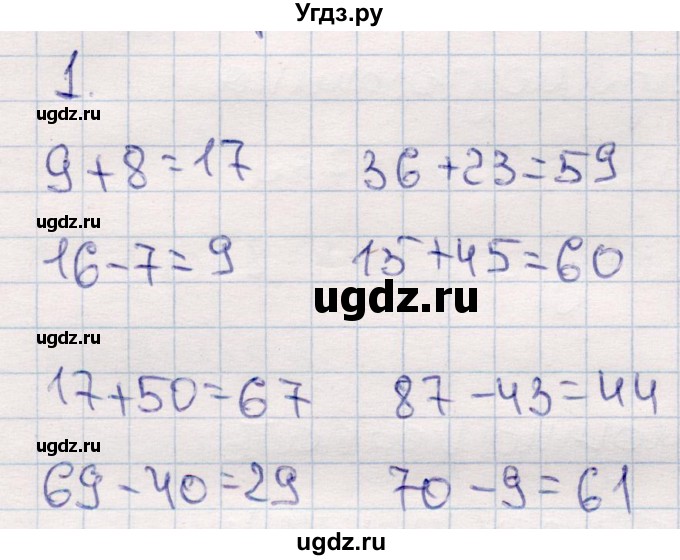 Угдз.ру
1.
ugdz.ru
9+8=17 36+23=59
ugdz.ru
16-7=9 15+45=60
ugdz.ru
ugdz.ru
17+50=67 87-43=44
ugdz.ru
69-40=29 70-9=61
ugdz.ru